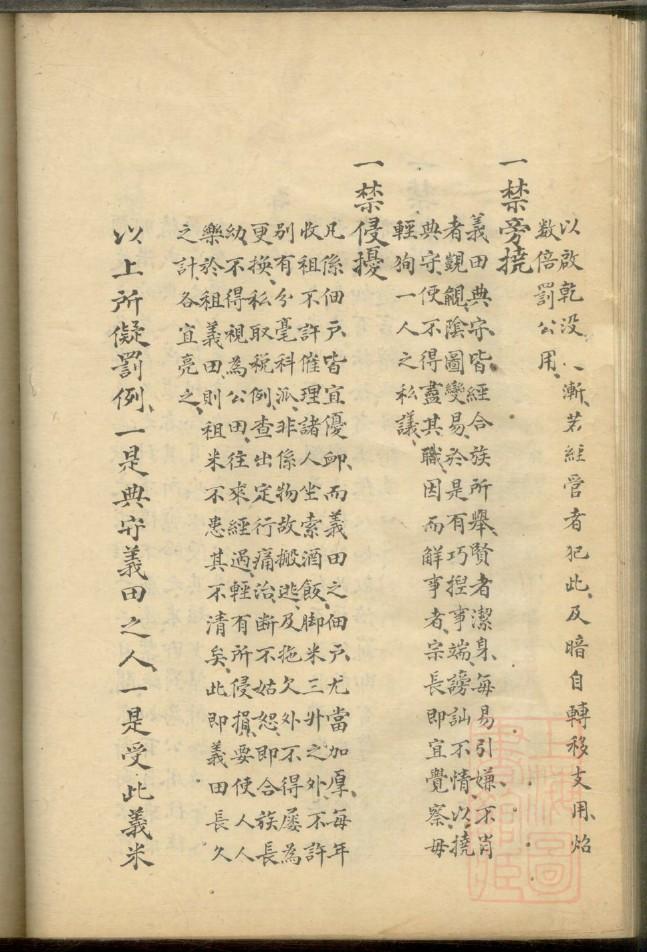 以啟乾没、漸若經管者犯此、及暗自轉移支用、炤
数倍罰公用、
一禁旁撓
義田典守、皆經合族所舉、賢者潔身、每易引嫌、不肖
者觀覦、陰圖變易、於是有巧捏事端、謗訕不情、以撓
典守、使不得盡其職、因而解事者、宗長即宜覺察、毋
輕狥一人之私議、
一禁侵擾
凡係佃戶、皆宜優卹、而義田之佃戶、尤當加厚、每年
收租、不許催理諸人坐索酒飯、脚米三升之外、不許
別有分毫科派、非係物故搬逃、及拖欠外、不得屡為
更換、私取税例、查出定行痛治、断不姑恕、即合族長
幼、不得視為公田、往來經過、輕有所侵損、要使人人
樂於租義田、則租米不患其不清矣、此即義田長久
之計、各宜亮之、
以上所儗罰例、一是典守義田之人、一是受此義米